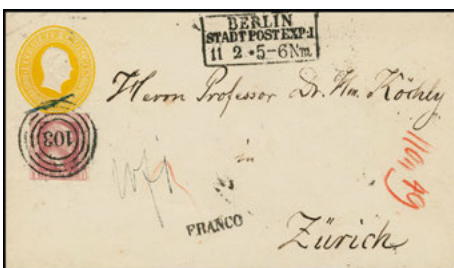 BERLIN
STADTPOST EXP. I
11 2 • 5-6 Nm
Herrn Professor Dr. Wm. Köchly
103
in
FRANCO
Zürich